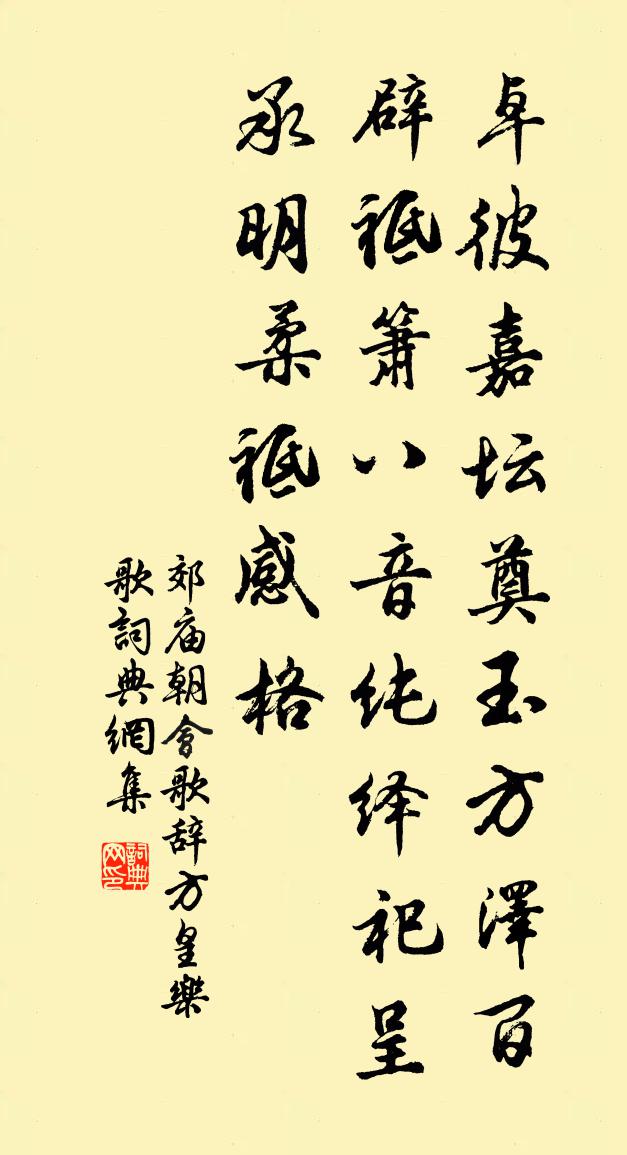 卓彼嘉坛奠玉方澤百
辟祗簫八音纯绎祀呈
承明柔祗感格
郊庙朝會歌辞方皇樂
歌詞典網集
詞典
网印